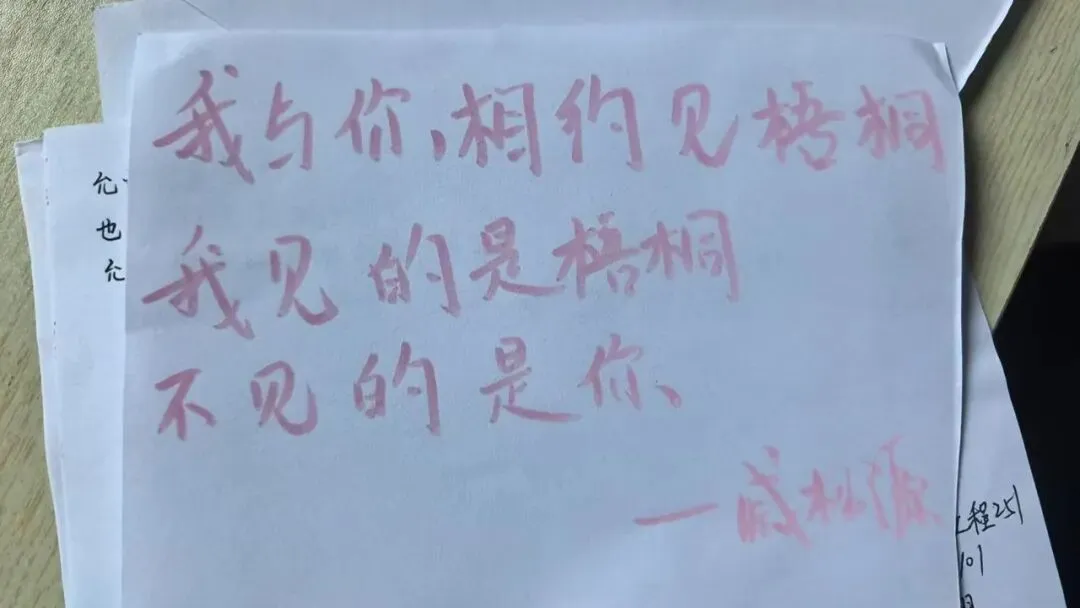 我与你,相约见梧桐
我见的是梧桐
不见的是你、
一戚松源
允
也
允
程251
101